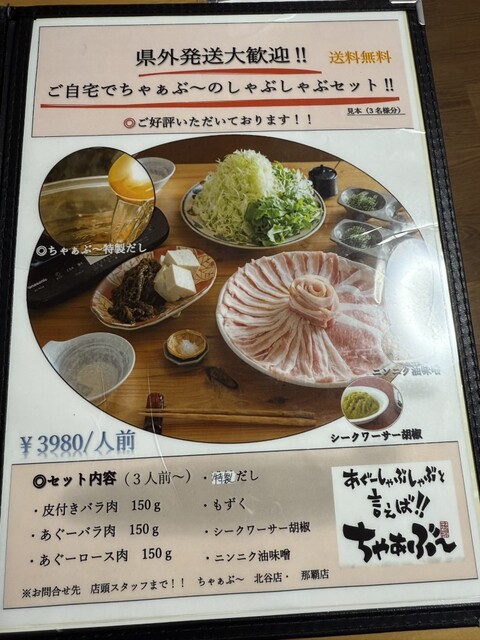 県外発送大歓迎!!
送料無料
ご自宅でちゃぁぶ～のしゃぶしゃぶセット!!
見本（3名様分）
◎ご好評いただいております！！
◎ちゃぁぶ～特製だし
ニンニク油味噌
シークワーサー胡椒
￥3980/人前
◎セット内容（３人前～）
・皮付きバラ肉　150ｇ
・あぐーバラ肉　150ｇ
・あぐーロース肉　150ｇ
・特製だし
・もずく
・シークワーサー胡椒
・ニンニク油味噌
あぐーしゃぶしゃぶと
言えば!!
ちゃあぶ～
※お問合せ先　店頭スタッフまで！！　ちゃぁぶ～　北谷店・　那覇店